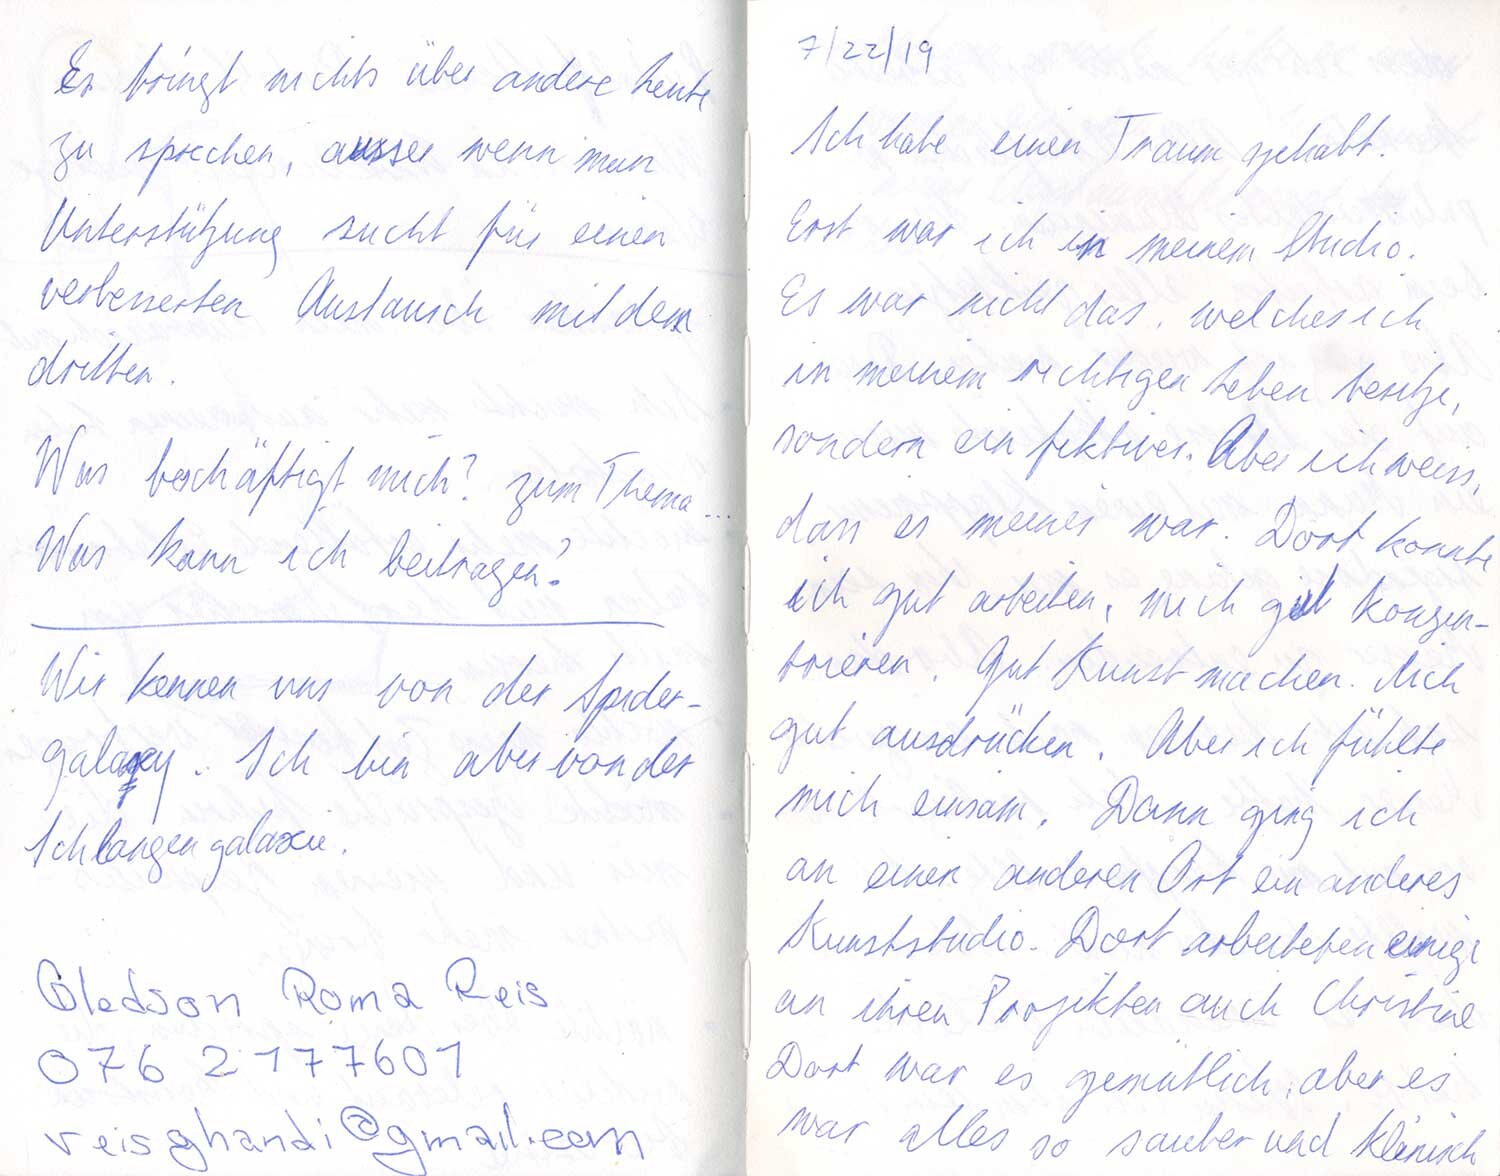 Es bringt nichts über andere Leute
zu sprechen, ausser wenn man
Unterstützung sucht für einen
verbesserten Austausch mit dem
dritten.
Was beschäftigt mich? zum Thema...
Was kann ich beitragen?
Wir kennen uns von der Spider-
galaxy. Ich bin aber von der
Schlangengalaxie.
Gledson Roma Reis
076 2177601
reisghandi@gmail.com
7/22/19
Ich habe einen Traum gehabt.
Erst war ich in meinem Studio.
Es war nicht das, welches ich
in meinem richtigen Leben besitze,
sondern ein fiktives. Aber ich weiss,
dass es meines war. Dort konnte
ich gut arbeiten, mich gut konzen-
trieren. Gut Kunst machen. Mich
gut ausdrücken. Aber ich fühlte
mich einsam. Dann ging ich
an einen anderen Ort ein anderes
Kunststudio. Dort arbeiteten einige
an ihren Projekten auch Christine
Dort war es gemütlich, aber es
war alles so sauber und klinisch